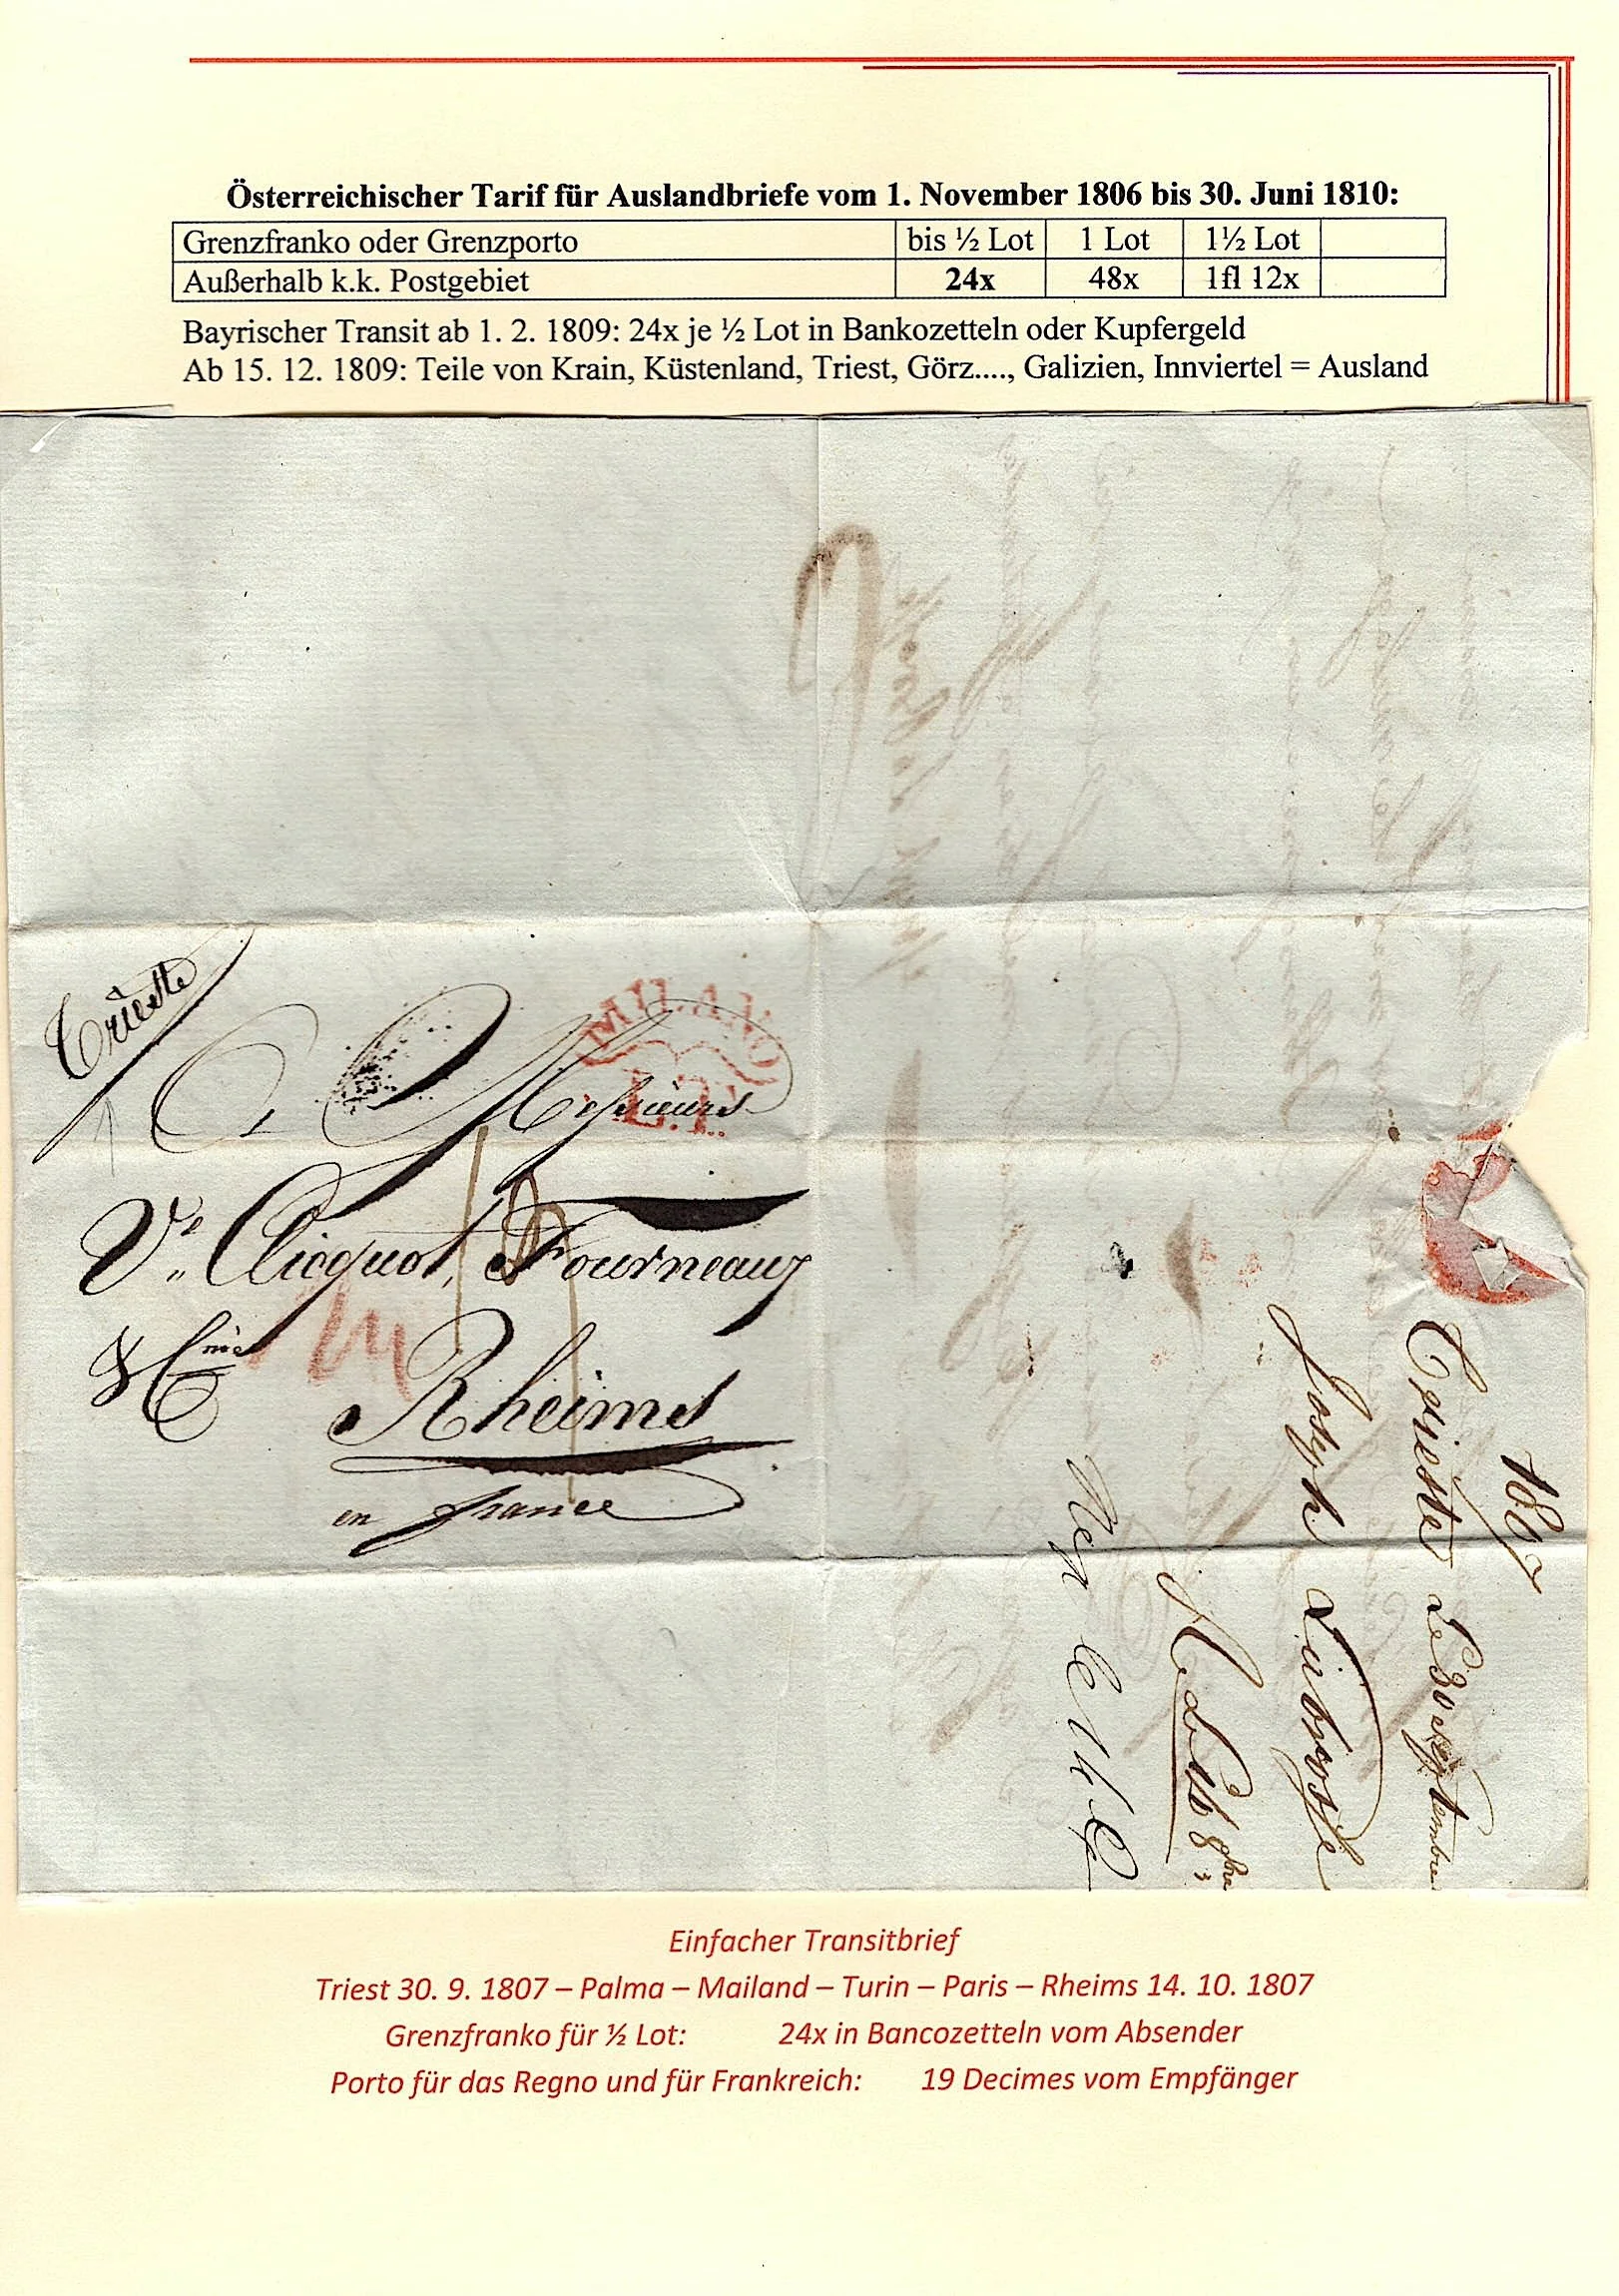 Österreichischer Tarif für Auslandbriefe vom 1. November 1806 bis 30. Juni 1810:
Grenzfranko oder Grenzporto bis ½ Lot 1 Lot 1½ Lot
Außerhalb k.k. Postgebiet 24x 48x 1fl 12x
Bayrischer Transit ab 1. 2. 1809: 24x je ½ Lot in Bankozetteln oder Kupfergeld
Ab 15. 12. 1809: Teile von Krain, Küstenland, Triest, Görz...., Galizien, Innviertel = Ausland
Trieste
MILANO
L.I.
Messieurs
Ve. Clicquot, Fourneaux
& Cnie
19
Rheims
en france
1807
Trieste Le 30 Septembre
Joseph
Einfacher Transitbrief
Triest 30. 9. 1807 – Palma – Mailand – Turin – Paris – Rheims 14. 10. 1807
Grenzfranko für ½ Lot: 24x in Bancozetteln vom Absender
Porto für das Regno und für Frankreich: 19 Decimes vom Empfänger